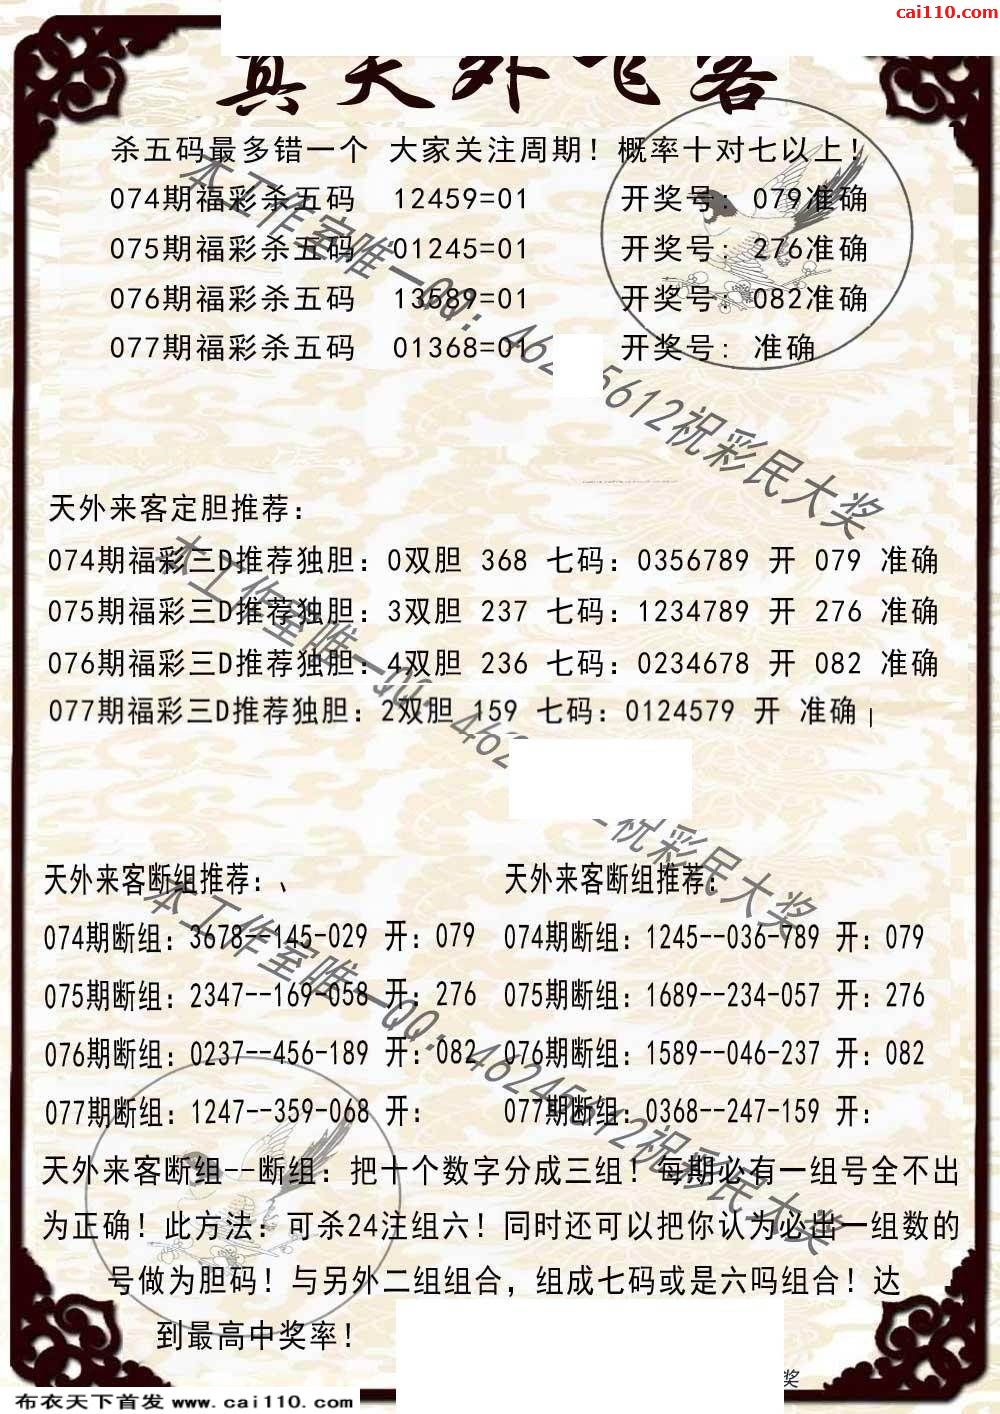 cai110.com
真天外飞客
杀五码最多错一个 大家关注周期！概率十对七以上！
074期福彩杀五码 12459=01 开奖号：079准确
075期福彩杀五码 01245=01 开奖号：276准确
076期福彩杀五码 13589=01 开奖号：082准确
077期福彩杀五码 01368=01 开奖号：准确
本工作室唯一QQ：462 5612祝彩民大奖
天外来客定胆推荐：
074期福彩三D推荐独胆：0双胆 368 七码：0356789 开 079 准确
075期福彩三D推荐独胆：3双胆 237 七码：1234789 开 276 准确
076期福彩三D推荐独胆：4双胆 236 七码：0234678 开 082 准确
077期福彩三D推荐独胆：2双胆 159 七码：0124579 开 准确
本工作室唯一QQ：462 祝彩民大奖
天外来客断组推荐：、 天外来客断组推荐：
074期断组：3678--145-029 开：079 074期断组：1245--036-789 开：079
075期断组：2347--169-058 开：276 075期断组：1689--234-057 开：276
076期断组：0237--456-189 开：082 076期断组：1589--046-237 开：082
077期断组：1247--359-068 开： 077期断组：0368--247-159 开：
本工作室唯一QQ：46245612祝彩民大奖
天外来客断组--断组：把十个数字分成三组！每期必有一组号全不出
为正确！此方法：可杀24注组六！同时还可以把你认为必出一组数的
号做为胆码！与另外二组组合，组成七码或是六吗组合！达
到最高中奖率！
奖
布衣天下首发 www.cai110.com